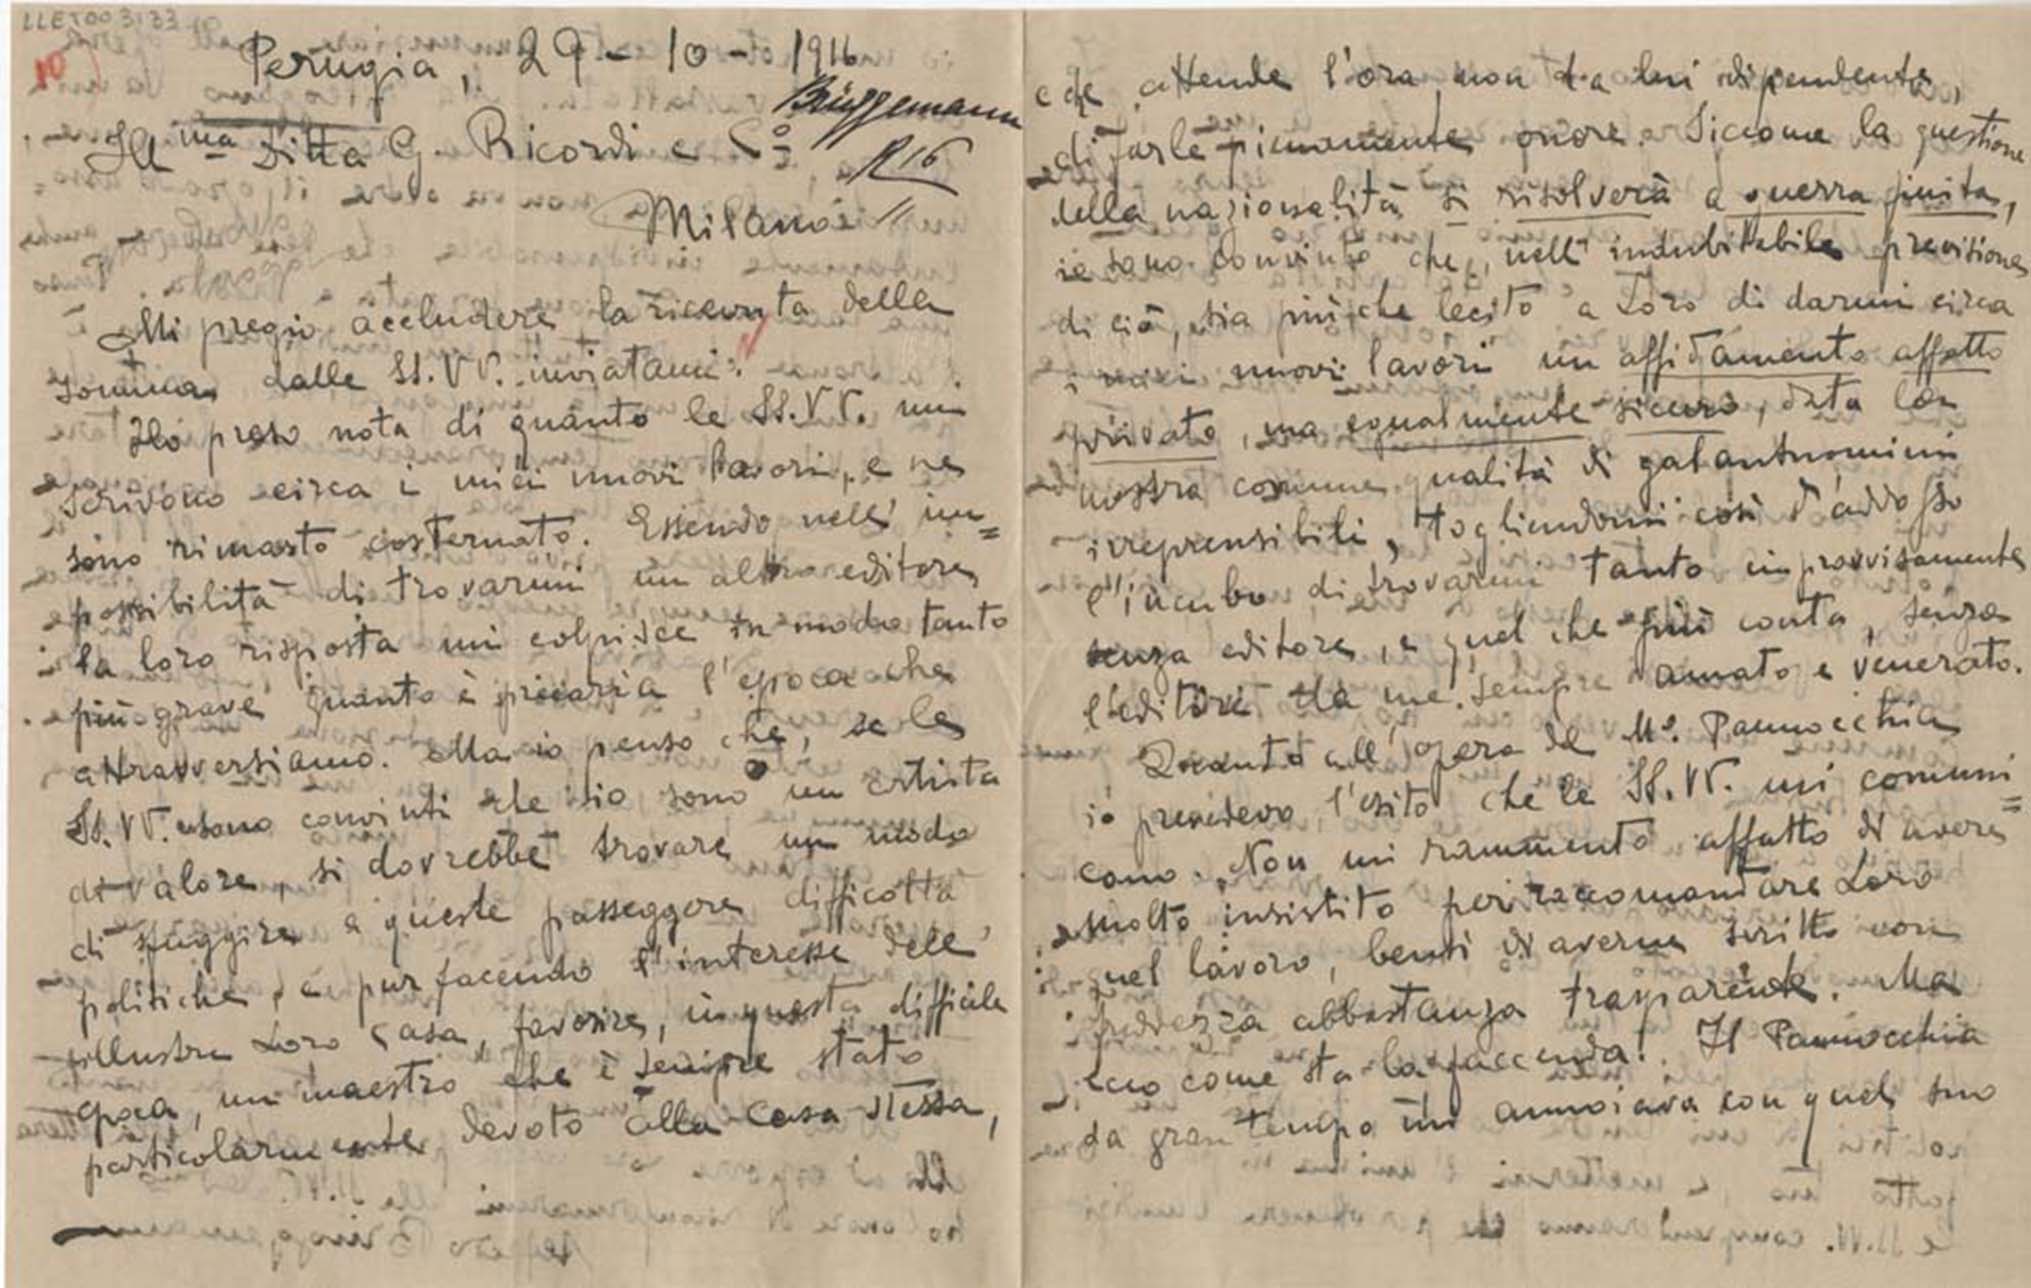 LLET003133
10
Perugia, 29 - 10 - 1916
Brüggemann
R16
Ill.ma Ditta G. Ricordi e C.o
Milano
Mi pregio accludere la ricevuta della
somma dalle SS.VV. inviatami.
Ho preso nota di quanto le SS.VV. mi
scrivono circa i miei nuovi lavori, e ne
sono rimasto costernato. Essendo nell' im=
possibilità di trovarmi un altro editore,
la loro risposta mi colpisce in modo tanto
più grave quanto è precaria l'epoca che
attraversiamo. Ma io penso che, se le
SS.VV. sono convinti che io sono un artista
di valore, si dovrebbe trovare un modo
di sfuggire a queste passeggere difficoltà
politiche, e pur facendo l'interesse dell'
illustre Loro Casa, favorire, in questa difficile
epoca, un maestro che è sempre stato
particolarmente devoto alla Casa stessa,
e che attende l'ora, non da lui dipendente,
di farle pienamente onore. Siccome la questione
della nazionalità si risolverà a guerra finita,
io sono convinto che, nell' indubitabile previsione
di ciò, sia più che lecito a Loro di darmi circa
i miei nuovi lavori un affidamento affatto
privato, ma egualmente sicuro, data la
nostra comune qualità di galantuomini
irreprensibili, togliendomi così d'addosso
l'incubo di trovarmi tanto improvvisamente
senza editore, e quel che più conta, senza
l'editore da me sempre amato e venerato.
Quanto all' opera del M.o Pannocchia
io prevedevo l'esito che le SS.VV. mi comuni=
cano. Non mi rammento affatto di avere
molto insistito per raccomandare Loro
quel lavoro, bensì di averne scritto con
freddezza abbastanza trasparente. Ma
ecco come sta la faccenda! Il Pannocchia
da gran tempo mi annoiava con quel suo